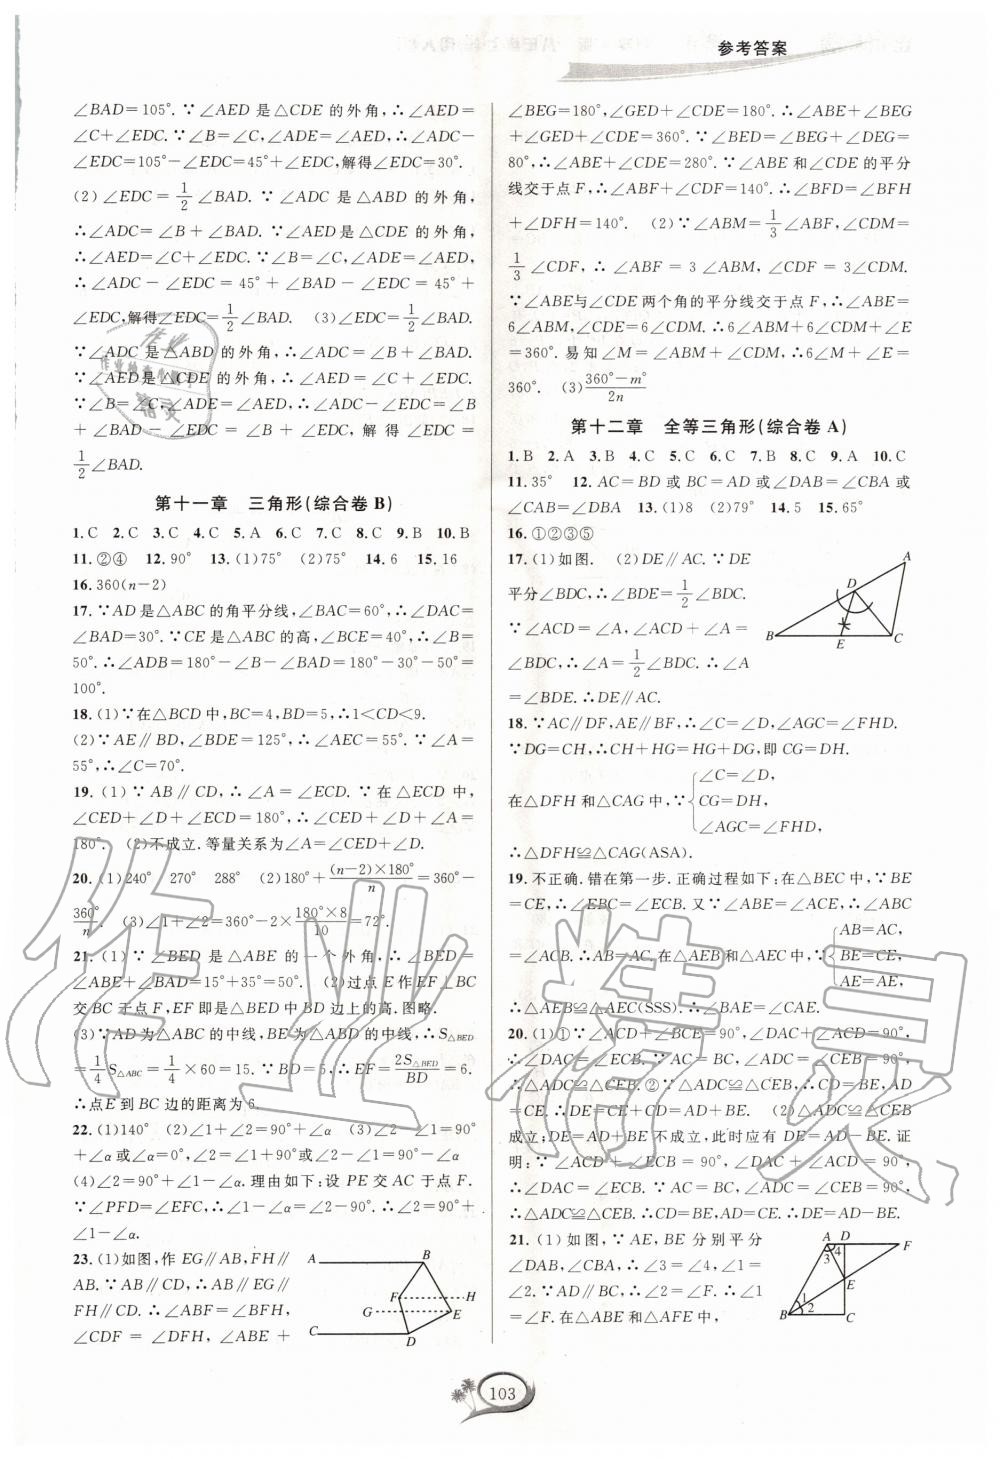 参考答案
∠BAD=105°. ∵∠AED是△CDE的外角,∴∠AED=
∠C+∠EDC. ∵∠B=∠C,∠ADE=∠AED,∴∠ADC-
∠EDC=105°-∠EDC=45°+∠EDC,解得∠EDC=30°.
(2)∠EDC=1/2∠BAD. ∵∠ADC是△ABD的外角,
∴∠ADC=∠B+∠BAD. ∵∠AED是△CDE的外角,
∴∠AED=∠C+∠EDC. ∵∠B=∠C,∠ADE=∠AED,
∴∠ADC-∠EDC=45°+∠BAD-∠EDC=45°+
∠EDC,解得∠EDC=1/2∠BAD. (3)∠EDC=1/2∠BAD.
∵∠ADC是△ABD的外角,∴∠ADC=∠B+∠BAD.
∵∠AED是△CDE的外角,∴∠AED=∠C+∠EDC.
∵∠B=∠C,∠ADE=∠AED,∴∠ADC-∠EDC=∠B
+∠BAD-∠EDC=∠C+∠EDC,解得∠EDC=
1/2∠BAD.
第十一章 三角形(综合卷B)
1.C 2.C 3.C 4.C 5.A 6.C 7.C 8.C 9.B 10.B
11.②④ 12.90° 13.(1)75° (2)75° 14.6 15.16
16.360(n-2)
17.∵AD是△ABC的角平分线,∠BAC=60°,∴∠DAC=
∠BAD=30°. ∵CE是△ABC的高,∠BCE=40°,∴∠B=
50°. ∴∠ADB=180°-∠B-∠BAD=180°-30°-50°=
100°.
18.(1)∵在△BCD中,BC=4,BD=5,∴1<CD<9.
(2)∵AE∥BD,∠BDE=125°,∴∠AEC=55°. ∵∠A=
55°,∴∠C=70°.
19.(1)∵AB∥CD,∴∠A=∠ECD. ∵在△ECD中,
∠CED+∠D+∠ECD=180°,∴∠CED+∠D+∠A=
180°. (2)不成立.等量关系为∠A=∠CED+∠D.
20.(1)240° 270° 288° (2)180°+(n-2)×180°/n=360°-
360°/n. (3)∠1+∠2=360°-2×180°×8/10=72°.
21.(1)∵∠BED是△ABE的一个外角,∴∠BED=
∠ABE+∠BAD=15°+35°=50°. (2)过点E作EF⊥BC
交BC于点F,EF即是△BED中BD边上的高.图略.
(3)∵AD为△ABC的中线,BE为△ABD的中线,∴S△BED
=1/4S△ABC=1/4×60=15. ∵BD=5,∴EF=2S△BED/BD=6.
∴点E到BC边的距离为6.
22.(1)140° (2)∠1+∠2=90°+∠α (3)∠2=90°+∠1
+∠α或∠α=0°,∠2=∠1+90°或∠2=90°+∠1-∠α
(4)∠2=90°+∠1-∠α.理由如下:设PE交AC于点F.
∵∠PFD=∠EFC,∴∠1-∠α=∠2-90°. ∴∠2=90°+
∠1-∠α.
23.(1)如图,作EG∥AB,FH∥
AB. ∵AB∥CD,∴AB∥EG∥
FH∥CD. ∴∠ABF=∠BFH,
∠CDF=∠DFH,∠ABE+
A B
F H
G E
C D
∠BEG=180°,∠GED+∠CDE=180°. ∴∠ABE+∠BEG
+∠GED+∠CDE=360°. ∵∠BED=∠BEG+∠DEG=
80°,∴∠ABE+∠CDE=280°. ∵∠ABE和∠CDE的平分
线交于点F,∴∠ABF+∠CDF=140°. ∴∠BFD=∠BFH
+∠DFH=140°. (2)∵∠ABM=1/3∠ABF,∠CDM=
1/3∠CDF,∴∠ABF=3∠ABM,∠CDF=3∠CDM.
∵∠ABE与∠CDE两个角的平分线交于点F,∴∠ABE=
6∠ABM,∠CDE=6∠CDM. ∴6∠ABM+6∠CDM+∠E
=360°.易知∠M=∠ABM+∠CDM,∴6∠M+∠E=
360°. (3)360°-m°/2n
第十二章 全等三角形(综合卷A)
1.B 2.A 3.B 4.C 5.C 6.C 7.B 8.C 9.A 10.C
11.35° 12.AC=BD或BC=AD或∠DAB=∠CBA或
∠CAB=∠DBA 13.(1)8 (2)79° 14.5 15.65°
16.①②③⑤
17.(1)如图. (2)DE∥AC. ∵DE
平分∠BDC,∴∠BDE=1/2∠BDC.
∵∠ACD=∠A,∠ACD+∠A=
∠BDC,∴∠A=1/2∠BDC. ∴∠A
=∠BDE. ∴DE∥AC.
A
D
B E C
18.∵AC∥DF,AE∥BF,∴∠C=∠D,∠AGC=∠FHD.
∵DG=CH,∴CH+HG=HG+DG,即CG=DH.
在△DFH和△CAG中,∵{∠C=∠D,
CG=DH,
∠AGC=∠FHD,
∴△DFH≌△CAG(ASA).
19.不正确.错在第一步.正确过程如下:在△BEC中,∵BE
=CE,∴∠EBC=∠ECB.又∵∠ABE=∠ACE,∴∠ABC
=∠ACB. ∴AB=AC.在△AEB和△AEC中,∵{AB=AC,
BE=CE,
AE=AE,
∴△AEB≌△AEC(SSS). ∴∠BAE=∠CAE.
20.(1)①∵∠ACD+∠BCE=90°,∠DAC+∠ACD=90°,
∴∠DAC=∠ECB. ∵∠ADC=∠CEB=90°,AC=CB,
∴△ADC≌△CEB.②∵△ADC≌△CEB,∴CD=BE,AD
=CE. ∴DE=CE+CD=AD+BE. (2)△ADC≌△CEB
成立;DE=AD+BE不成立,此时应有DE=AD-BE.证
明:∵∠ACD+∠ECB=90°,∠DAC+∠ACD=90°,
∴∠DAC=∠ECB. ∵AC=BC,∠ADC=∠CEB=90°,
∴△ADC≌△CEB. ∴CD=BE,AD=CE. ∴DE=AD-BE.
21.(1)如图,∵AE,BE分别平分
∠DAB,∠CBA,∴∠3=∠4,∠1=
∠2. ∵AD∥BC,∴∠2=∠F. ∴∠1
=∠F.在△ABE和△AFE中,
A D F
3 4
E
1
2
B C
103
作业精灵